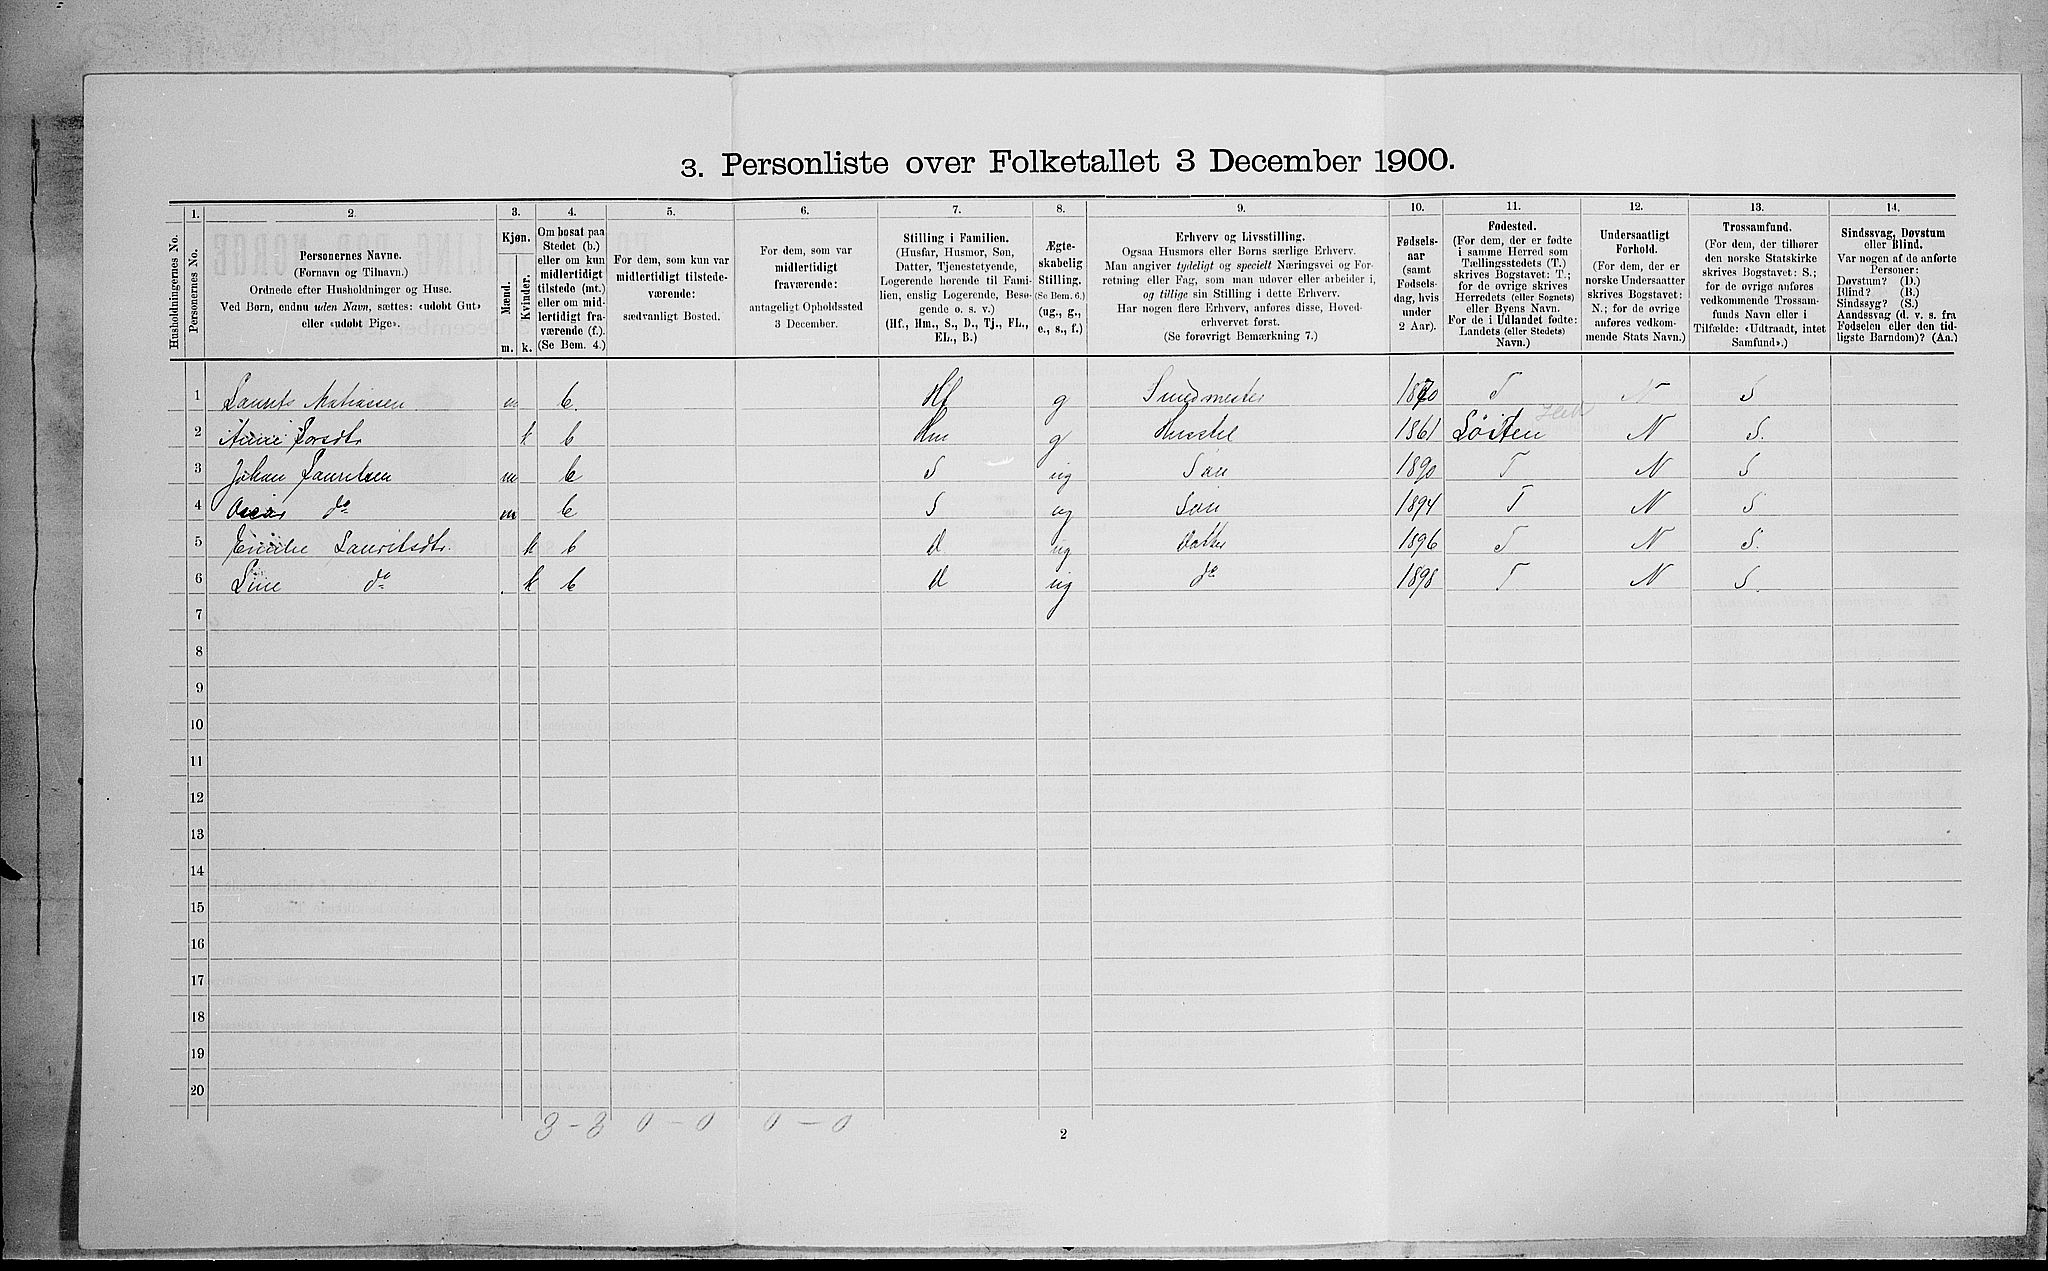 3. Personliste over Folketallet 3 December 1900.
1. 2. 3. 4. 5. 6. 7. 8. 9. 10. 11. 12. 13. 14.
Husholdningernes No.
Personernes No.
Personernes Navne.
(Fornavn og Tilnavn.)
Ordnede efter Husholdninger og Huse.
Ved Børn, endnu uden Navn, sættes: «udøbt Gut»
eller «udøbt Pige».
Kjøn.
Mænd.
Kvinder.
m. k.
Om bosat paa
Stedet (b.)
eller om kun
midlertidigt
tilstede (mt.)
eller om mid-
lertidigt fra-
værende (f.).
(Se Bem. 4.)
For dem, som kun var
midlertidigt tilstede-
værende:
sædvanligt Bosted.
For dem, som var
midlertidigt
fraværende:
antageligt Opholdssted
3 December.
Stilling i Familien.
(Husfar, Husmor, Søn,
Datter, Tjenestetyende,
Logerende hørende til Fami-
lien, enslig Logerende, Besø-
gende o. s. v.)
(Hf., Hm., S., D., Tj., FL.,
EL., B.)
Ægte-
skabelig
Stilling.
(Se Bem. 6.)
(ug., g.,
e., s., f.)
Erhverv og Livsstilling.
Ogsaa Husmors eller Børns særlige Erhverv.
Man angiver tydeligt og specielt Næringsvei og For-
retning eller Fag, som man udøver eller arbeider i,
og tillige sin Stilling i dette Erhverv.
Har nogen flere Erhverv, anføres disse, Hoved-
erhvervet først.
(Se forøvrigt Bemærkning 7.)
Fødsels-
aar
(samt
Fødsels-
dag, hvis
under
2 Aar).
Fødested.
(For dem, der er fødte
i samme Herred som
Tællingsstedets (T.)
skrives Bogstavet: T.;
for de øvrige skrives
Herredets (eller Sognets)
eller Byens Navn.
For de i Udlandet fødte:
Landets (eller Stedets)
Navn.)
Undersaatligt
Forhold.
(For dem, der er
norske Undersaatter
skrives Bogstavet:
N.; for de øvrige
anføres vedkom-
mende Stats Navn.)
Trossamfund.
(For dem, der tilhører
den norske Statskirke
skrives Bogstavet: S.;
for de øvrige anføres
vedkommende Trossam-
funds Navn eller i
Tilfælde: «Udtraadt, intet
Samfund».)
Sindssvag, Døvstum
eller Blind.
Var nogen af de anførte
Personer:
Døvstum? (D.)
Blind? (B.)
Sindssyg? (S.)
Aandssvag (d. v. s. fra
Fødselen eller den tid-
ligste Barndom)? (Aa.)
1 Laurits Matiassen m b Hf g Smedmester 1870 T N S
2 Anne Larsdtr k b Hm g Husstel 1861 Løiten N S.
3 Johan Lauritsen m b S ug Søn 1890 T N S
4 Oscar do m b S ug Søn 1894 T N S
5 Emilie Lauritsdtr. k b d ug datter 1896 T N S.
6 Line do k b d ug do 1898 T N S.
7
8
9
10
11
12
13
14
15
16
17
18
19
20
3 - 3 0 - 0 0 - 0
2